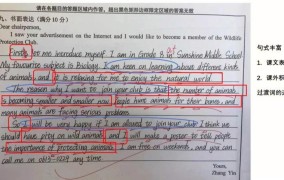 请在各题目的答题区域内作答，超出黑色矩形边框限定区域的答案无效
九、书面表达（满分 10 分）
Dear chairperson,
I saw your advertisement on the Internet and I would like to become a member of the Wildlife
Protection Club.
Kindly for me introduce myself. I am in Grade 8 at Sunshine Middle School
My favourite subject is Biology. I am keen on learning about different kinds
of animals and it is relaxing for me to enjoy the natural world.
The reason why I want to join your club is that the number of animals
is becoming smaller and smaller now. People hunt animals for their bones, and
many animals are facing serious problems
So I will be very happy if I am allowed to join your club. I think we
should have pity on wild animals, and I will make a poster to tell people
the importance of protecting animals. I am free on weekends, and you can
call me on any time.
Yours,
Zhang Yin
句式丰富
1. 课文表
2. 课外积
过渡词的